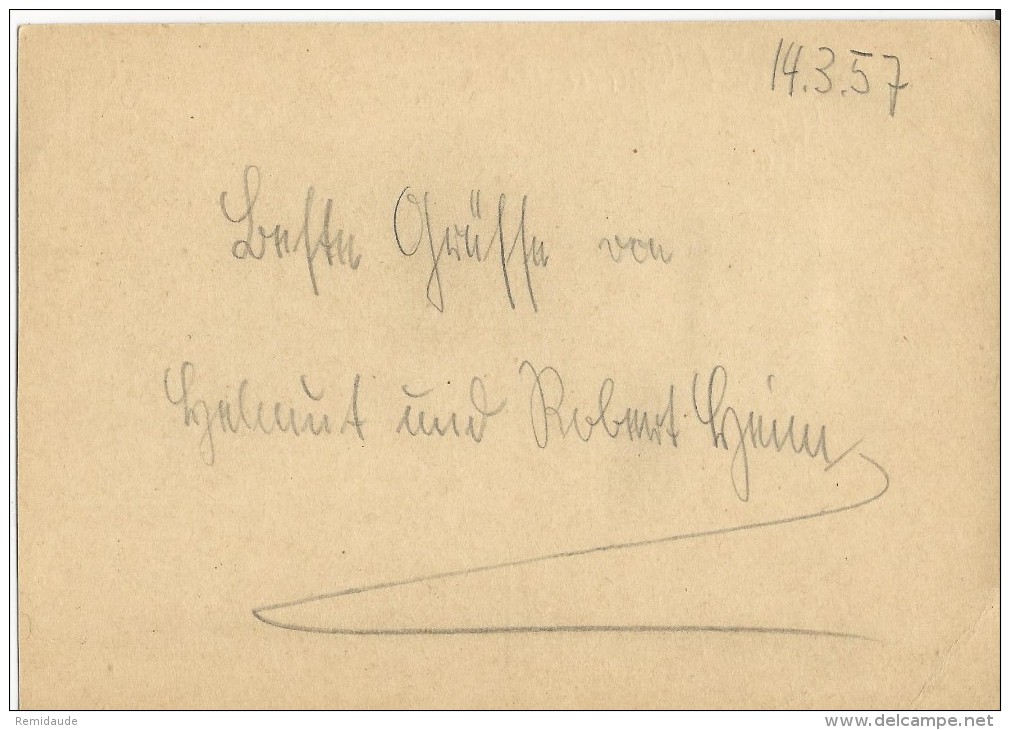 14.3.57
Beste Grüsse von
Helmut und Robert Heim
Remidaude
www.delcampe.net